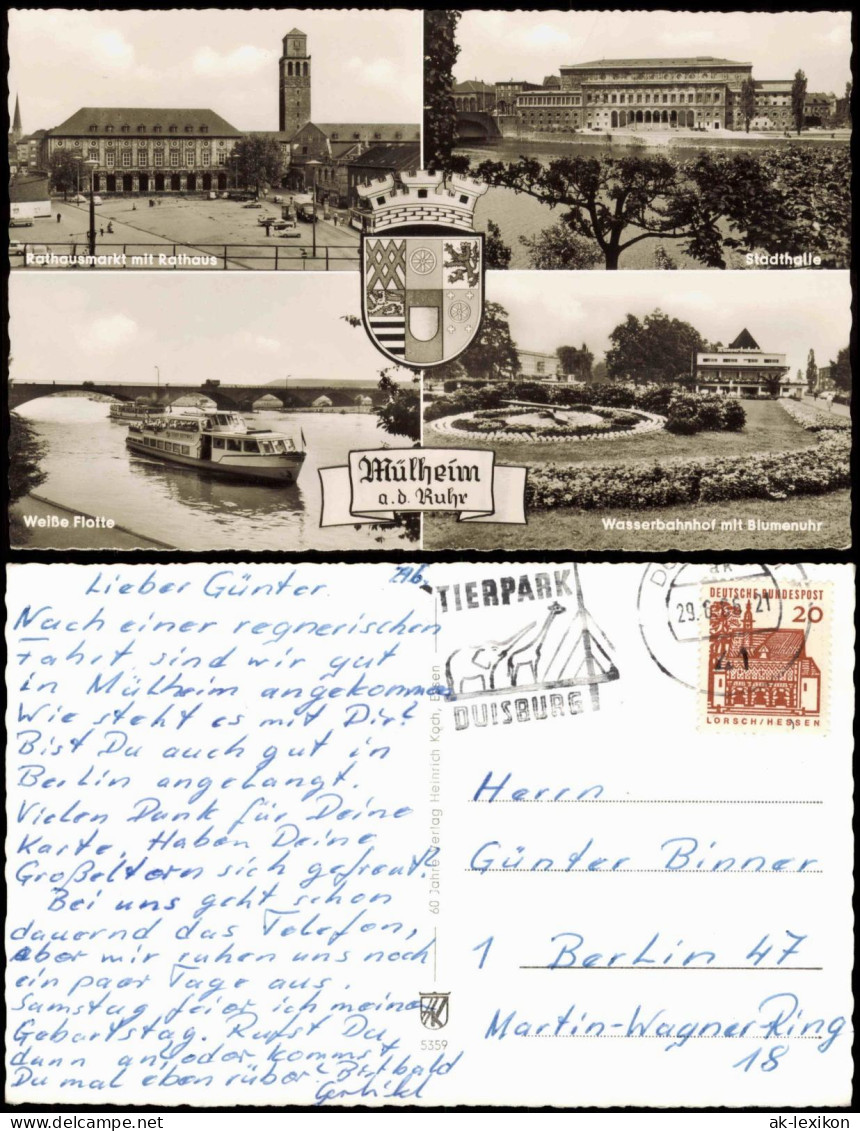 Rathausmarkt mit Rathaus
Stadthalle
Mülheim
a.d. Ruhr
Weiße Flotte
Wasserbahnhof mit Blumenuhr
Lieber Günter. 29.6.
Nach einer regnerischen
Fahrt sind wir gut
in Mülheim angekommen
Wie steht es mit Dir?
Bist Du auch gut in
Berlin angelangt.
Vielen Dank für Deine
Karte. Haben Deine
Großeltern sich gefreut?
Bei uns geht schon
dauernd das Telefon,
aber wir ruhen uns noch
ein paar Tage aus.
Samstag feier ich meinen
Geburtstag. Rufst Du
dann an, oder kommst
Du mal eben rüber? Bis bald
60 Jahre Verlag Heinrich Koch, Essen
5359
TIERPARK
DUISBURG
DEUTSCHE BUNDESPOST
20
LORSCH/HESSEN
Herrn
Günter Binner
1 Berlin 47
Martin-Wagner-Ring
18
ak-lexikon.com